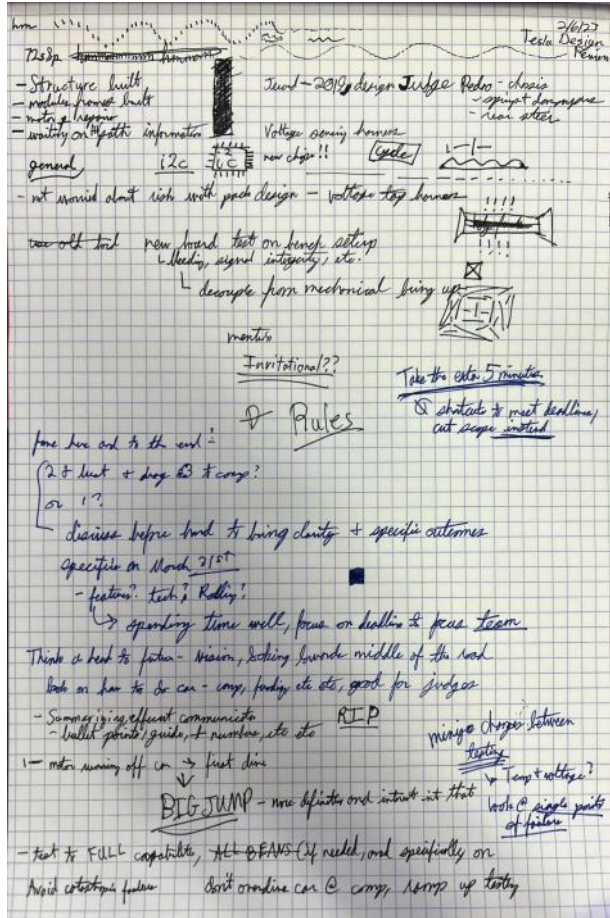 hmm
2/6/23
Tesla Design
Review
72s8p
- Structure built
- modules almost built
- motor repairs
- waiting on path information
Jeud - 2019 design Judge Pedro - chassis
- sprint
- rear steer
Voltage sensing harness
new chips!!
cycle
general
i2c
- not worried about rish with pack design - voltage tap harness
old bord new board test on bench setup
signal integrity, etc.
decouple from mechanical bring up
Invitational??
Take the extra 5 minutes
shortcuts to meet deadlines,
cut scope instead
Rules
from here and to the end:
2 + bust + drag to comp?
or 1?
discuss before hand to bring clarity + specific outcomes
specifics on March 21st
- features? tech? Rolling?
spending time well, focus on deadline to focus team
Think a head to future - vision, looking towards middle of the road
book on how to do car - comp, funding etc etc, good for judges
- Summarizing, efficient communicate
- bullet points, guide, + numbers, etc etc
RIP
changes between
testing
Temp + voltage?
look @ single points
of failure
1- motor running off car → first drive
BIG JUMP - more definition and interest int that
- test to FULL capabilities, ALL BEANS (if needed, and specifically on
Avoid catastrophic failure don't overdrive car @ comp, ramp up testing